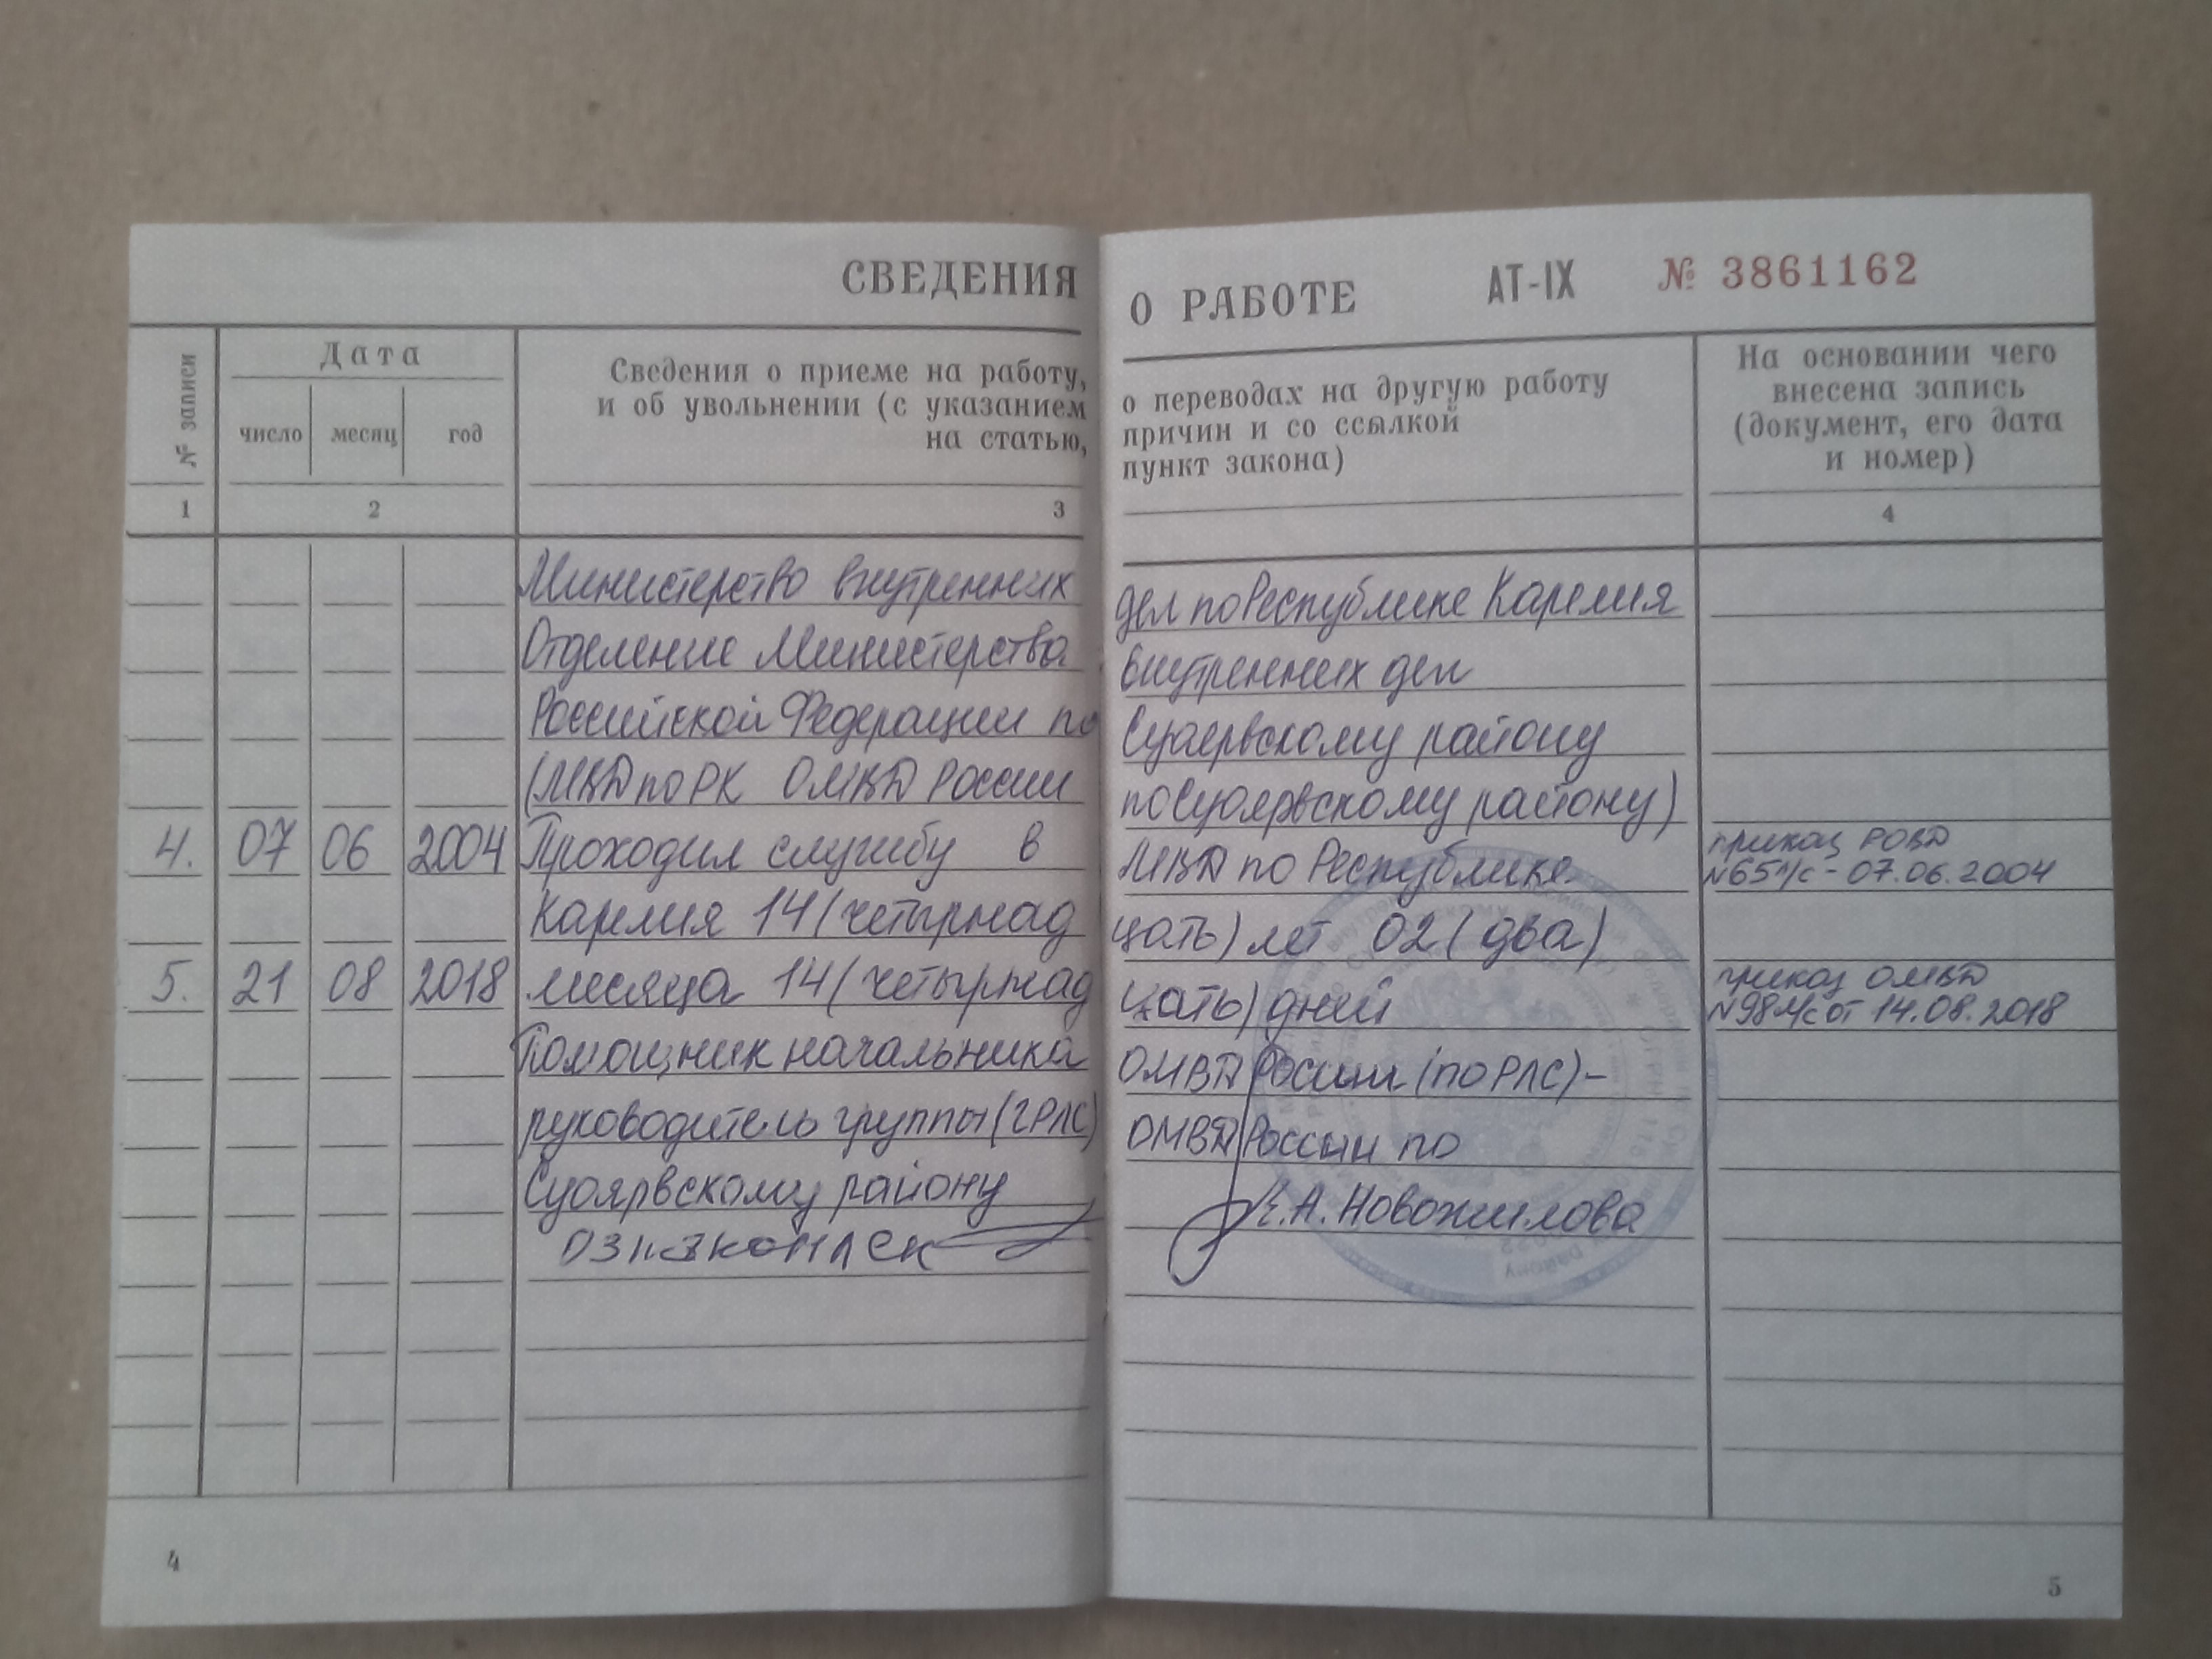 СВЕДЕНИЯ
О РАБОТЕ АТ-IX № 3861162
№ записи
Дата
число месяц год
Сведения о приеме на работу,
и об увольнении (с указанием
на статью,
о переводах на другую работу
причин и со ссылкой
пункт закона)
На основании чего
внесена запись
(документ, его дата
и номер)
1 2 3 4
Министерство внутренних дел по Республике Карелия
Отделение Министерства внутренних дел
Российской Федерации по Суоярвскому району
(МВД по РК ОМВД России по Суоярвскому району)
4. 07 06 2004 Проходил службу в МВД по Республике приказ РОВД
№65л/с - 07.06.2004
Карелия 14 (четырнад цать) лет 02 (два)
5. 21 08 2018 месяца 14 (четырнад цать) дней приказ ОМВД
№98л/с от 14.08.2018
Помощник начальника ОМВД России (по РЛС)-
руководитель группы (ГРЛС) ОМВД России по
Суоярвскому району Е.А. Новожилова
4
5